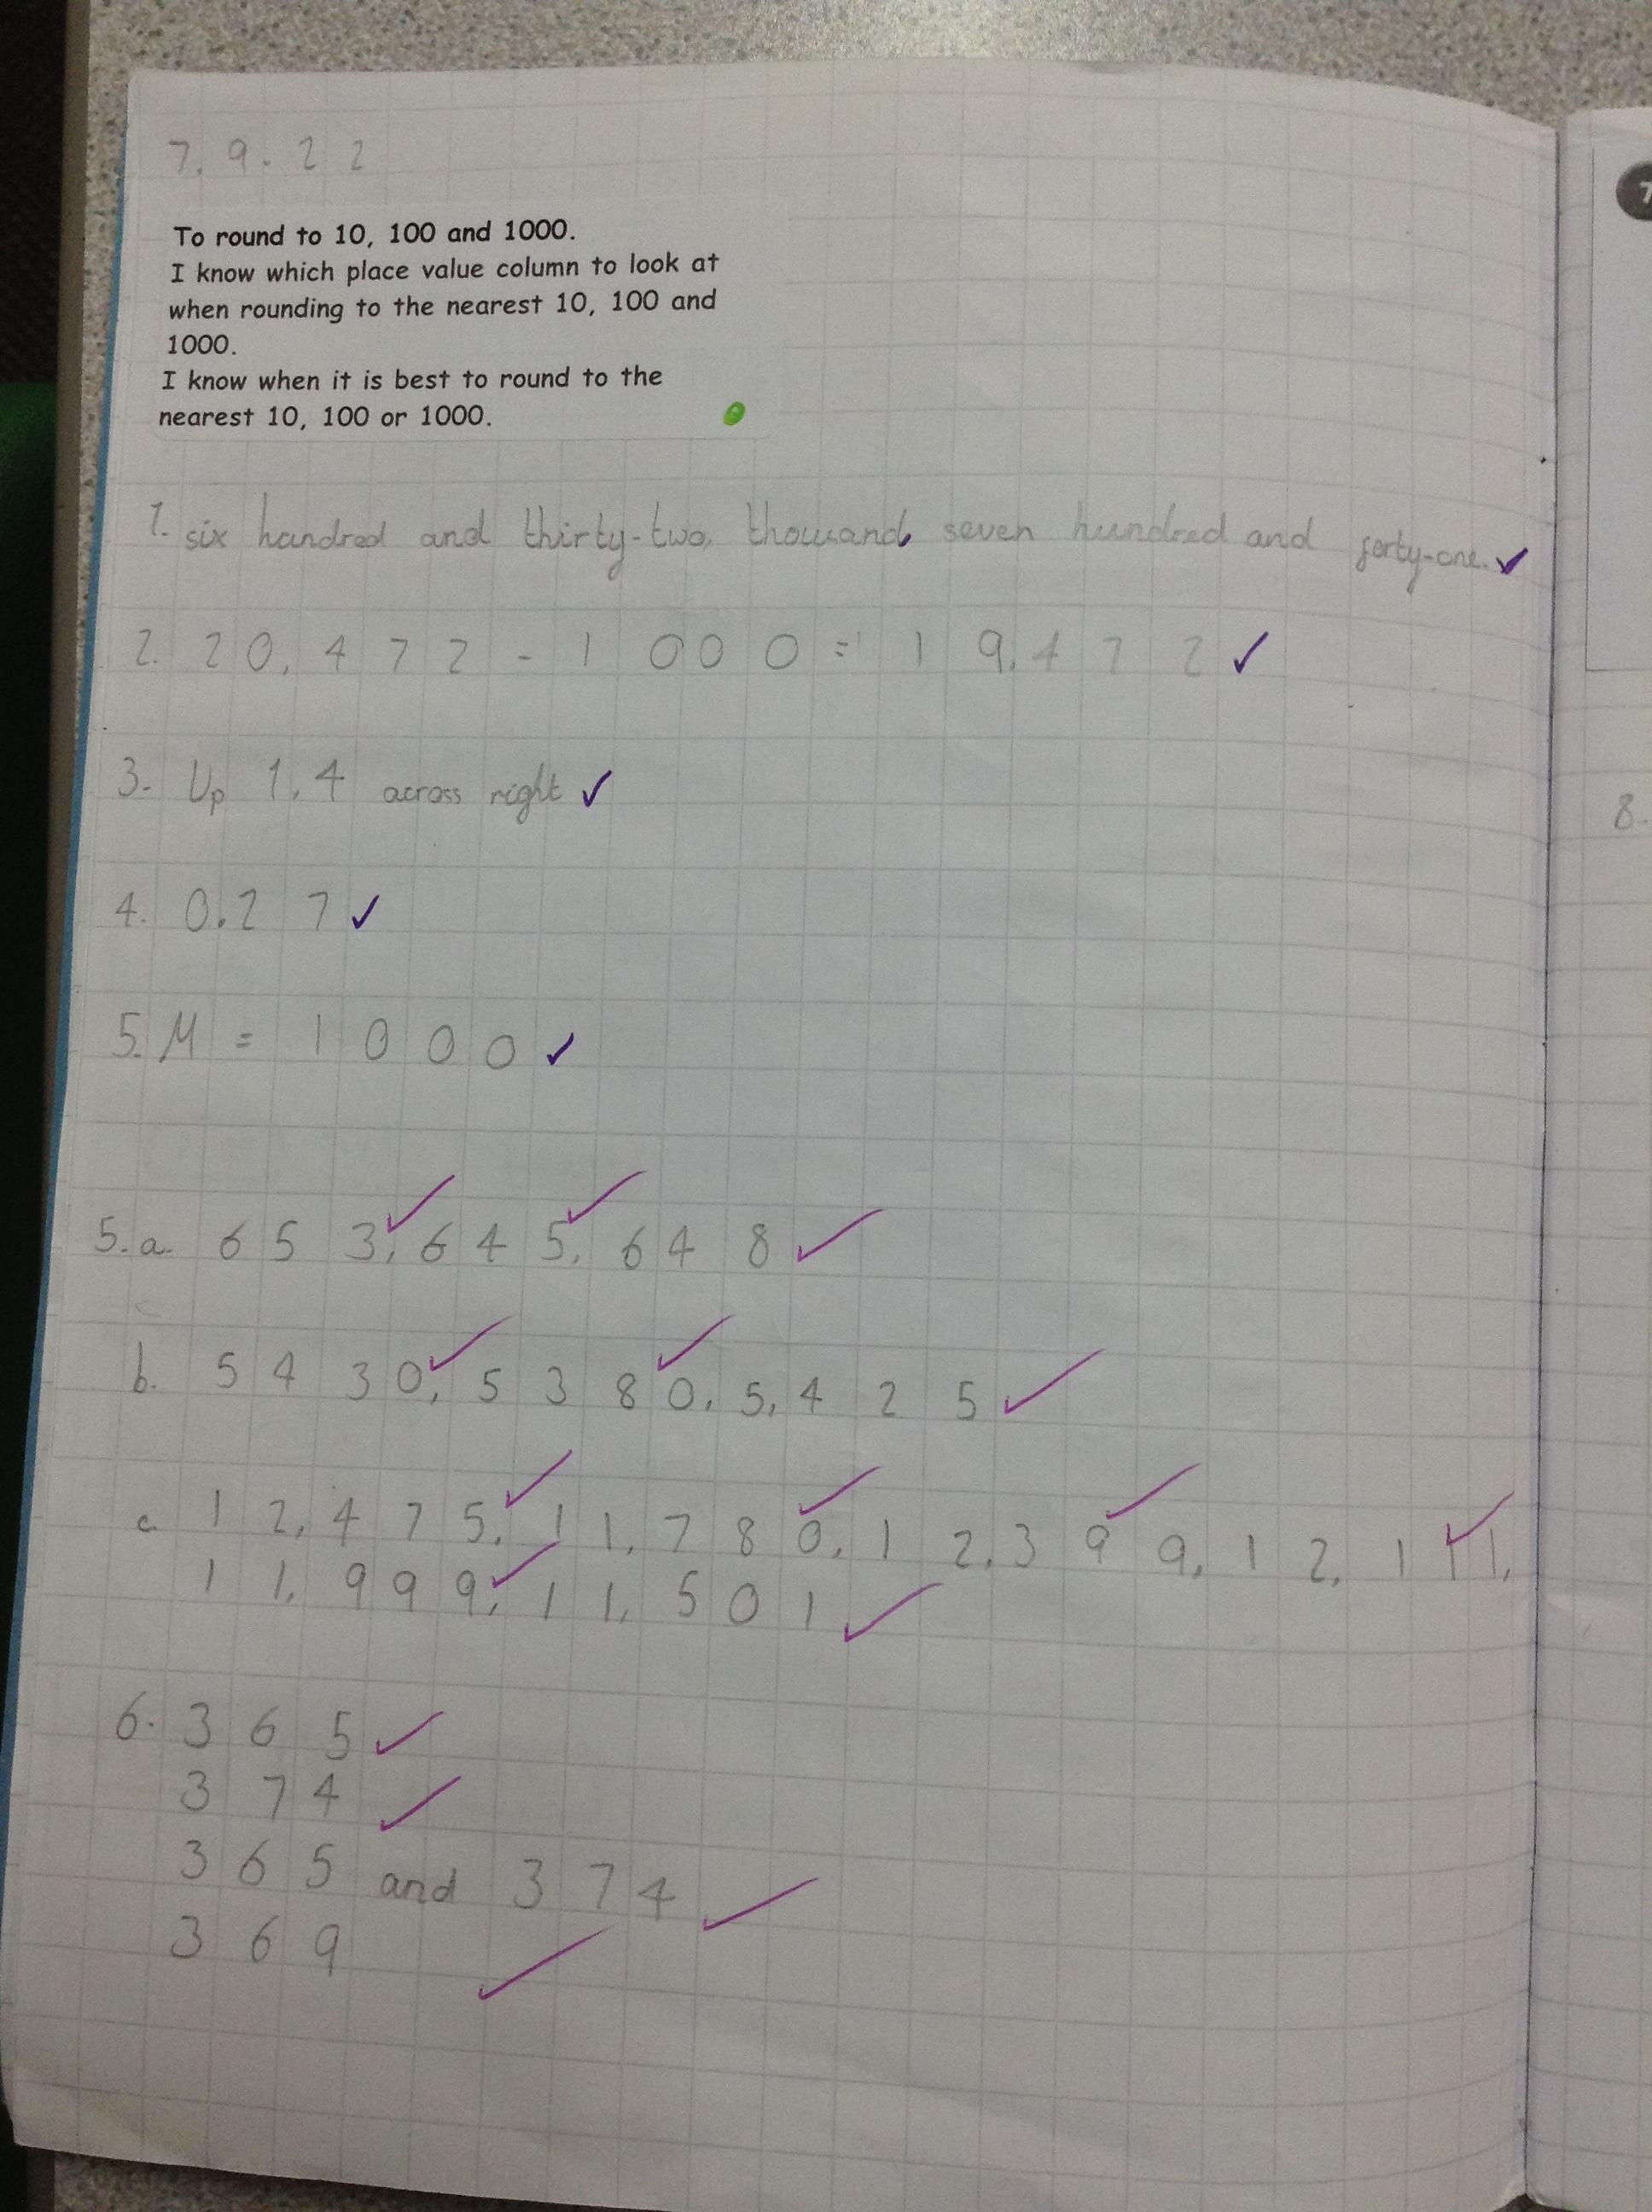 7.9.22
To round to 10, 100 and 1000.
I know which place value column to look at
when rounding to the nearest 10, 100 and
1000.
I know when it is best to round to the
nearest 10, 100 or 1000.
1. six hundred and thirty-two thousand, seven hundred and forty-one.
2. 20,472 - 1000 = 19,472
3. Up 1, 4 across right
4. 0.27
5. M = 1000
5. a. 653, 645, 648
b. 5430, 5380, 5,425
c. 12,475, 11,780, 12,399, 12,111,
11,999, 11,501
6. 365
374
365 and 374
369
7
8.